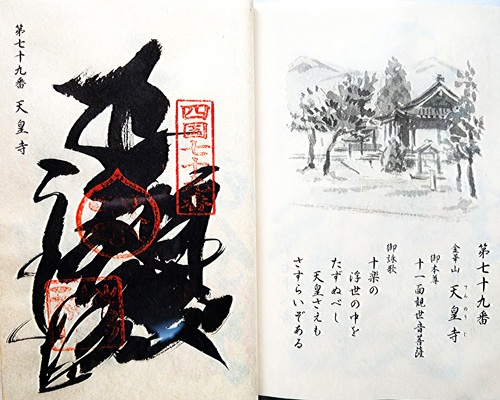 第七十九番 天皇寺
四国七十九番
第七十九番
金華山 天皇寺
てんのうじ
御本尊
十一面観世音菩薩
御詠歌
十楽の
浮世の中を
たずねべし
天皇さえも
さすらいぞある